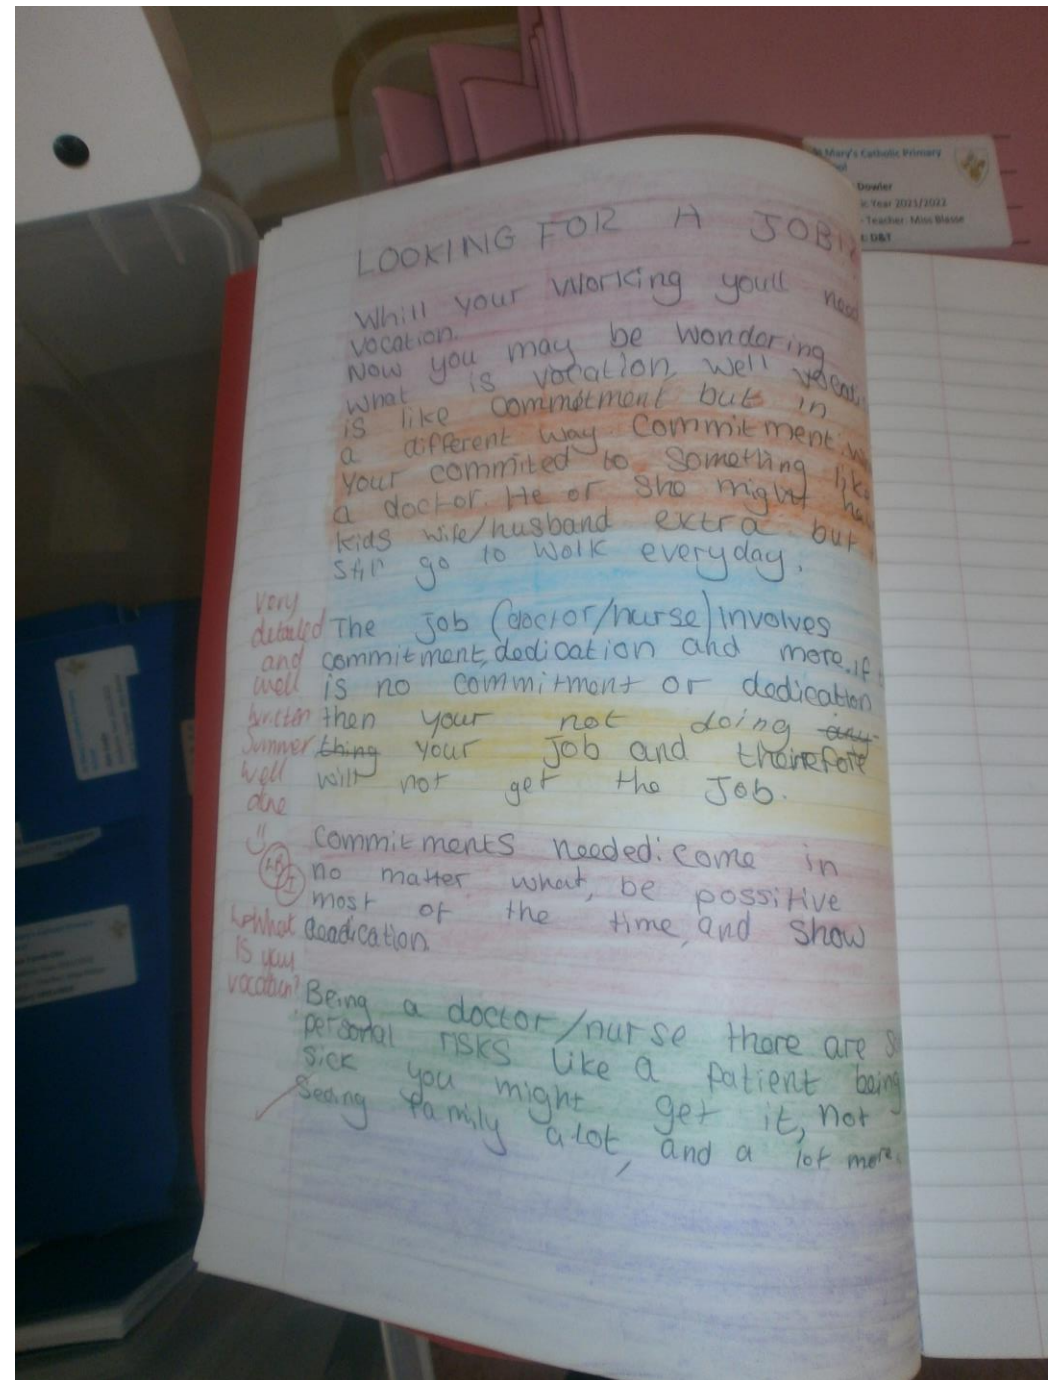 Mary's Catholic Primary
Dowler
Year 2021/2022
Teacher: Miss Blasse
D&T
LOOKING FOR A JOB
Whill your working youll need
vocation.
Now you may be wondering
what is vocation, well vocat
is like commitment but in
a different way. Commitment
your commited to something like
a doctor. He or she might ha
kids wife/husband extra but
still go to work everyday.
The job (doctor/nurse) involves
commitment, dedication and more. if
is no commitment or dedication
then your not doing any
thing your job and therefore
will not get the job.
commitments needed: come in
no matter what, be possitive
most of the time, and show
deadication.
Being a doctor/nurse there are
personal risks like a patient being
sick you might get it, not
Seeing family alot, and a lot more.
very
detailed
and
well
written
Summer
well
done
What
is your
vocation?